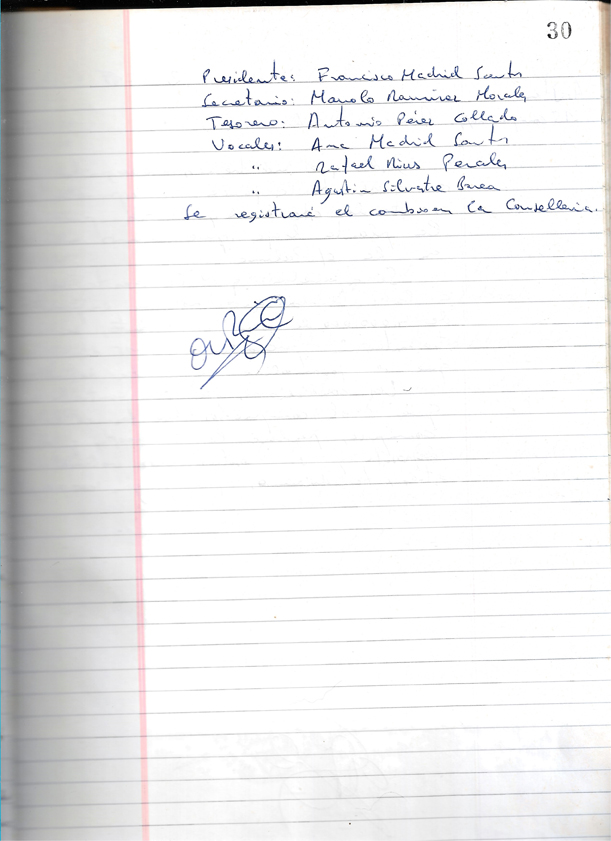 30
Presidente: Francisco Madrid Santos
Secretario: Manolo Ramírez Morales
Tesorero: Antonio Pérez Collado
Vocales: Ana Madrid Santos
" Rafael Rius Perales
" Agustín Silvestre Barea
Se registrará el cambio en la Conselleria.